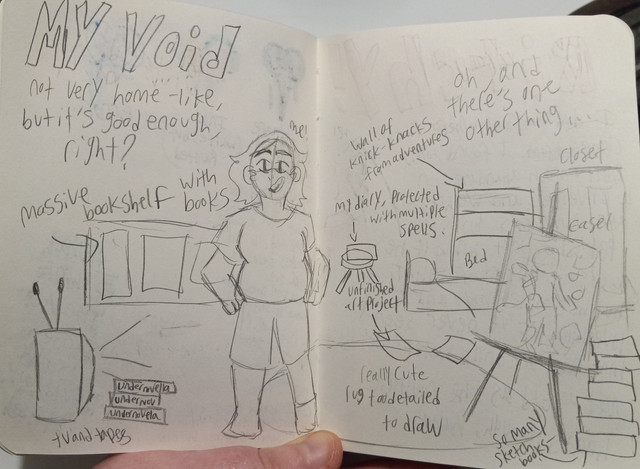 MY Void
not very home-like,
but it's good enough,
right?
me!
massive bookshelf with
books
undernovella
undernov
undernovela
tv and tapes
oh, and
there's one
other thing
wall of
knick-knacks
from adventures
closet
my diary, Protected
with multiple
spells.
easel
Bed
unfinished
art Project
really cute
rug too detailed
to draw
so many
sketch
books